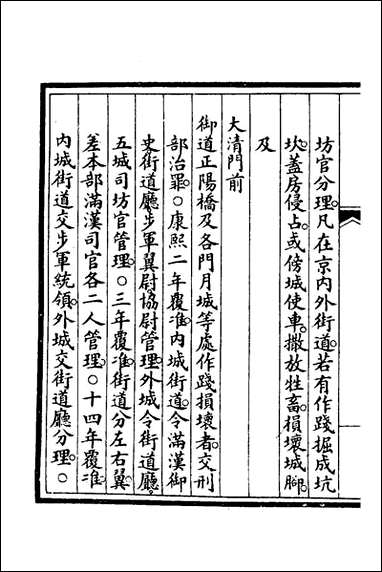 坊官分理。凡在京内外街道。若有作踐掘成坑
坎。蓋房侵占。或傍城使車。撒放牲畜。損壞城腳。
及
大清門前
御道正陽橋及各門月城等處作踐損壞者。交刑
部治罪。○康熙二年覆准。内城街道。令滿漢御
史街道廳。步軍翼尉。協尉管理。外城令街道廳。
五城司坊官管理。○三年覆准。街道分左右翼。
差本部滿漢司官各二人管理。○十四年覆准。
内城街道交步軍統領。外城交街道廳分理。○